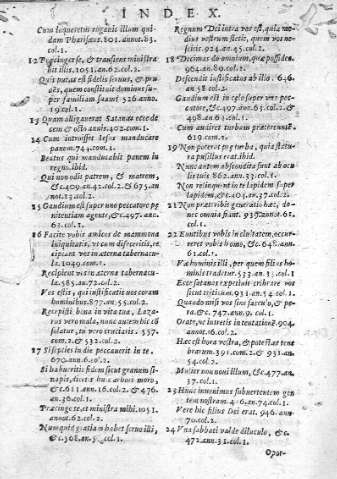 INDEX.
Cum loqueretur rogauit illum qui
dam Pharisæus. 801. annot. 83.
col. 1.
12 Præcinget se, & transiens ministra
bit illis. 1051. an. 62. col. 2.
Quis putas est fidelis seruus, & pru-
dēs, quem constituit dominus su-
per familiam suam? 526. anno.
19. col. 1.
13 Quam alligauerat Satanas ecce de
cem & octo annis. 402. com. 1.
14 Cum introisset Iesus manducare
panem. 744. com. 1.
Beatus qui manducabit panem in
regno. ibid.
Qui non odit patrem, & matrem,
& c. 409. an. 42. col. 2. & 675. an
not. 13. col. 2.
15 Gaudium est super uno peccatore pœ
nitentiam agente, &c. 497. anc.
63. col. 1.
16 Facite vobis amicos de mammona
iniquitatis, vt cum defeceritis, re-
cipiant vos in æterna tabernacu-
la. 1049. com. 1.
Recipient vos in æterna tabernacu
la. 585. an. 72. col. 2.
Vos estis, qui iustificatis vos coram
hominibus. 877. an. 55. col. 2.
Recepisti bona in vita tua, Laza-
rus vero mala, nunc autem hic cō
solatur, tu vero cruciaris. 357.
com. 2. & 532. col. 2.
17 Si septies in die peccauerit in te.
670. an. 6. col. 2.
Si habueritis fidem sicut granum si-
napis, dicetis huic arbori moro,
& c. 611. ann. 16. col. 2. & 476.
an. 36. col. 1.
Præcinge te, et ministra mihi. 1051.
annot. 62. col. 2.
Numquid gratiam habet seruo illi,
& c. 308. an. col. 1.
Regnum Dei intra vos est, quia me-
dius vestrum stetit, quem vos ne-
scitis. 924. an. 45. col. 2.
18 Decimas do omnium, quæ possideo.
964. an. 80. col. 2.
Descendit iustificatus ab illo. 646.
an. 58. col. 2.
Gaudium est in cœlo super vno pec-
catore, &c. 497. an. 63. col. 2. &
498. an. 61. col. 1.
Cum audiret turbam prætereuntē.
619. com. 1.
19 Non poterat præ turba, quia statu-
ra pusillus erat. ibid.
Nunc autem abscondita sunt ab ocu
lis tuis. 862. ann. 33. col. 1.
Non relinquent in te lapidem super
lapidem, &c. 403. an. 37. col. 2.
21 Non præteribit generatio hæc, do-
nec omnia fiant. 935. annot. 61.
col. 1.
22 Euntibus vobis in ciuitatem, occur-
ret vobis homo, & c. 648. ann.
61. col. 1.
Væ homini illi, per quem filius ho
minis tradetur. 533. an. 15. col. 1
Ecce satanas expetiuit cribrare vos
sicut triticum. 931. an. 54. col. 1.
Quando misi vos sine sacculo, & pe-
ra, &c. 747. ann. 9. col. 1.
Orate, ne intretis in tentationē. 904.
annot. 16. col. 2.
Hæc est hora vestra, & potestas tene
brarum. 391. com. 2. & 931. an.
54. col. 2.
Mulier non noui illum, & c. 477. an.
37. col. 1.
23 Hunc inuenimus subuertentem gen
tem nostram. 476. an. 74. col. 1.
Vere hic filius Dei erat. 946. ann.
70. col. 2.
24 Vna sabbati valde diluculo, & c.
472. ann. 31. col. 1.
Opor-